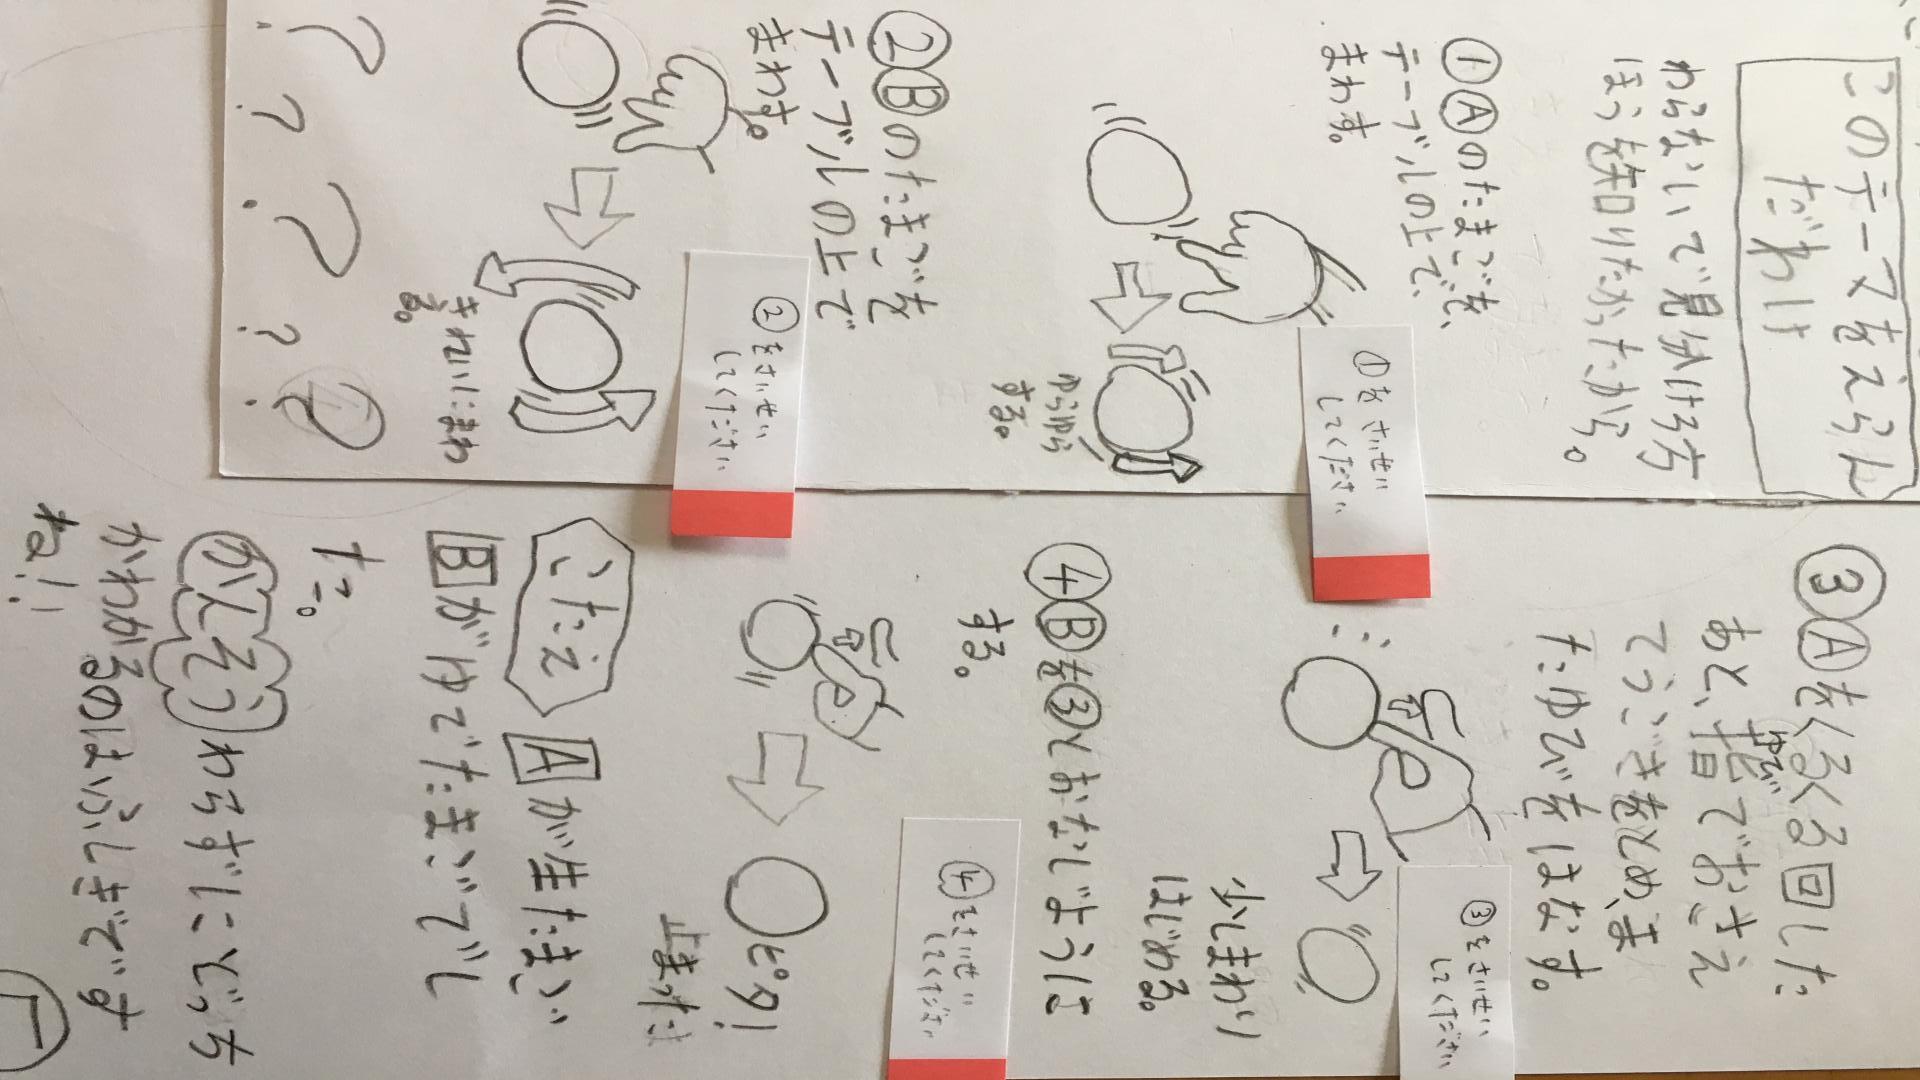 このテーマをえらん
だわけ
わらないで見分ける方
ほうを知りたかったから。
①Ⓐのたまごを、
テーブルの上で、
まわす。
ゆらゆら
する。
①をさいせい
してください
②Ⓑのたまごを
テーブルの上で
まわす。
きれいにまわ
る。
②をさいせい
してください
? ? ? ? ?
③Ⓐをくるくる回した
あと、指でおさえ
ゆび
てうごきをとめ、ま
たゆびをはなす。
少しまわり
はじめる。
③をさいせい
してください
④Ⓑを③とおなじように
する。
ピタ!
止まった
④をさいせい
してください
こたえ
Aが生たまご
Bがゆでたまごでし
た。
かんそう
わらずにどっち
かわかるのはふしぎです
ね!!